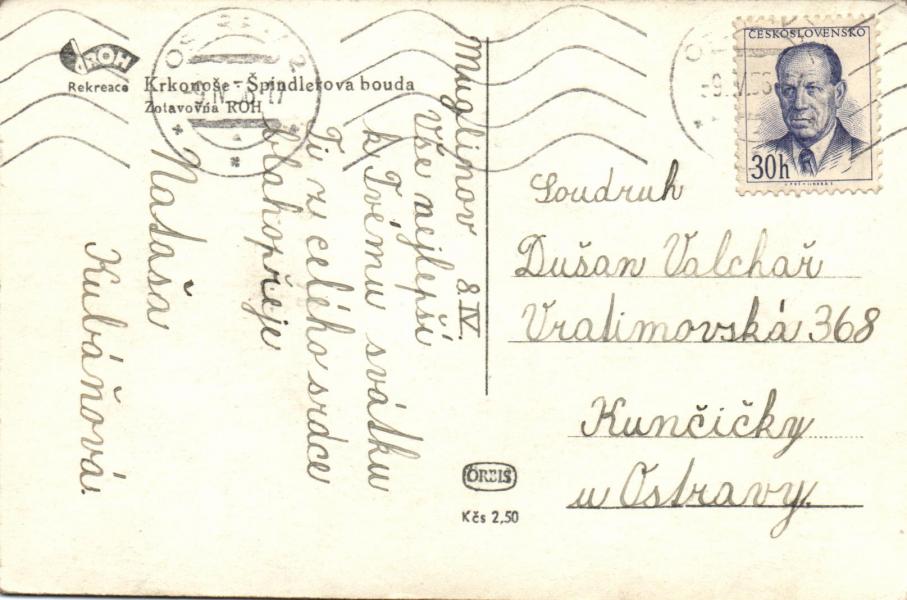 ROH
Rekreace
Krkonoše - Špindlerova bouda
Zotavovna ROH
Muglinov 8 IV.
Vše nejlepší
k Tvému svátku
Ti z celého srdce
blahopřeje
Nataša
Kubáňová.
ČESKOSLOVENSKO
30h
Soudruh
Dušan Valchař
Vratimovská 368
Kunčičky
u Ostravy.
ORBIS
Kčs 2,50